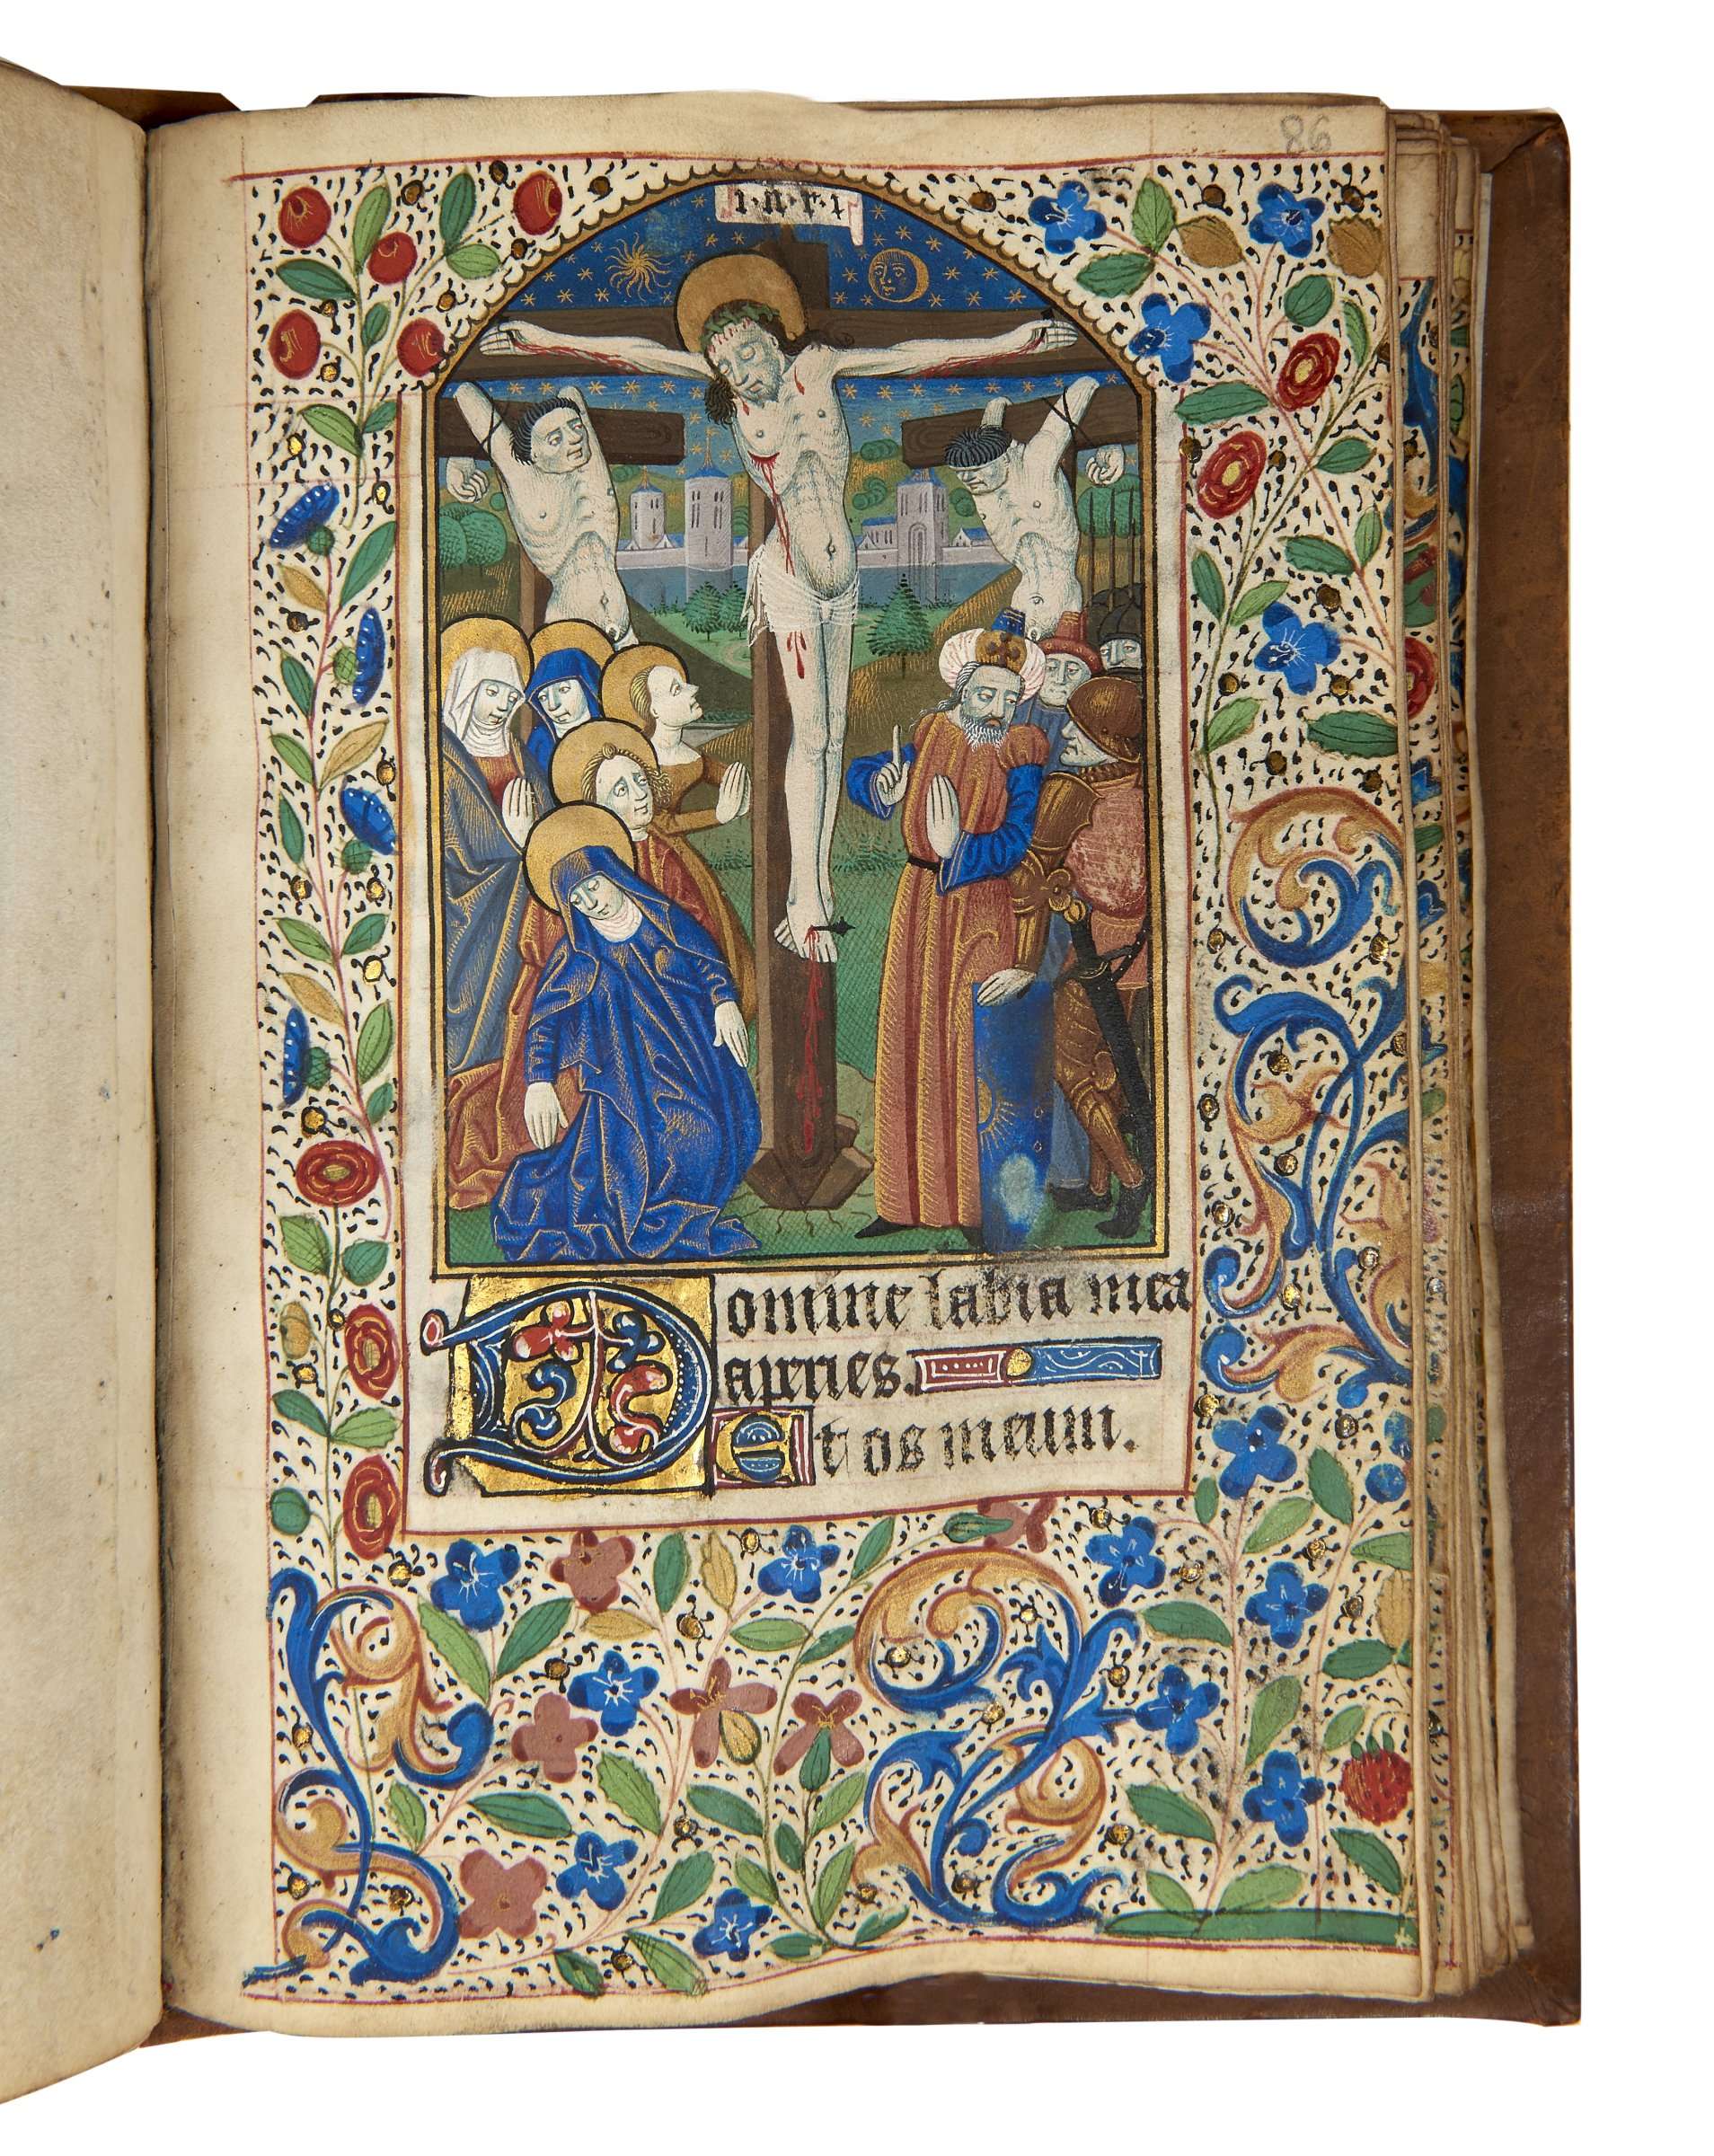 86
i.n.r.i
Domine labia mea
aperies.
Et os meum.